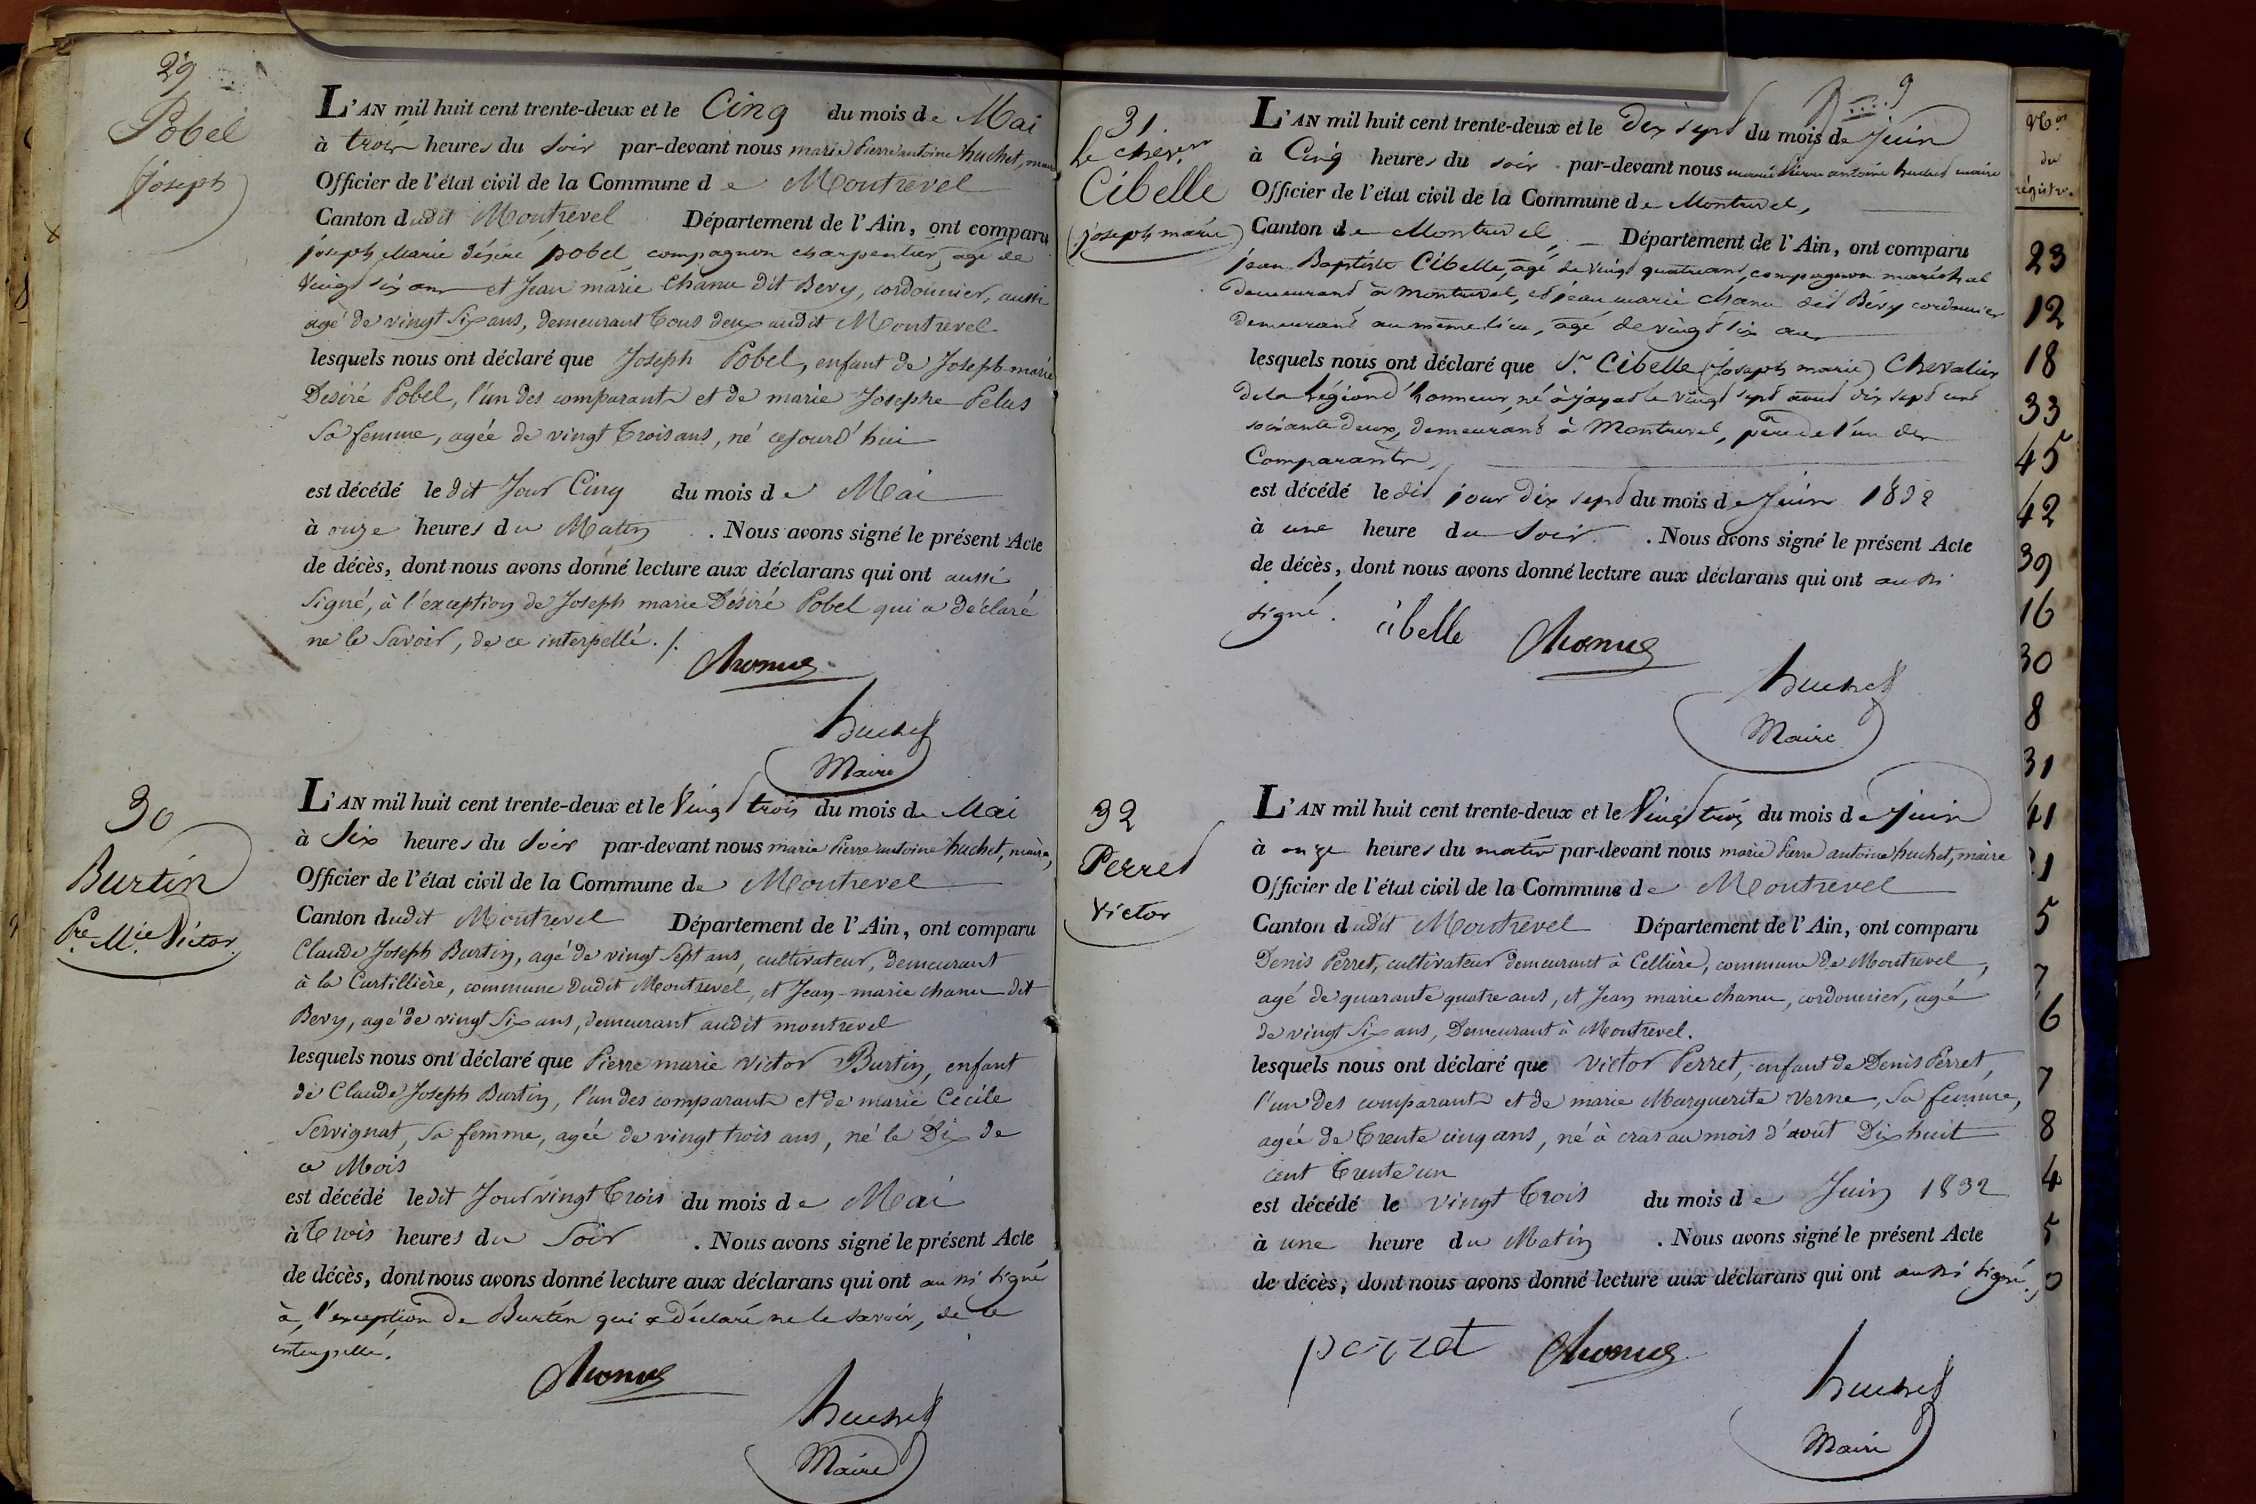 29
Pobel
(Joseph)
L'AN mil huit cent trente-deux et le Cinq du mois de Mai
à trois heures du soir par-devant nous marie Pierre antoine huchet, maire
Officier de l'état civil de la Commune de Montrevel
Canton dudit Montrevel Département de l'Ain, ont comparu
joseph Marie désiré pobel compagnon charpentier, agé de
vingt six ans et Jean marie Chanu dit Bevy, cordonnier, aussi
agé de vingt six ans, demeurant tous deux audit Montrevel
lesquels nous ont déclaré que Joseph Pobel, enfant de Joseph marie
Desiré Pobel, l'un des comparants et de marie Josephe Pelus
sa femme, agée de vingt trois ans, né cejourd'hui
est décédé le dit Jour Cinq du mois de Mai
à onze heures du Matin . Nous avons signé le présent Acte
de décès, dont nous avons donné lecture aux déclarans qui ont aussi
signé, à l'exception de Joseph marie Désiré Pobel qui a déclaré
ne le savoir, de ce interpellé ./.
Chanu
huchet
Maire
30
Burtin
Pre. Mie. Victor.
L'AN mil huit cent trente-deux et le Vingt trois du mois de Mai
à Six heures du Soir par-devant nous marie Pierre antoine huchet, maire,
Officier de l'état civil de la Commune de Montrevel
Canton dudit Montrevel Département de l'Ain, ont comparu
Claude Joseph Burtin, agé de vingt sept ans, cultivateur, demeurant
à la Curtillière, commune dudit Montrevel, et Jean-marie chanu dit
Bevy, agé de vingt six ans, demeurant audit montrevel
lesquels nous ont déclaré que Pierre marie victor Burtin, enfant
de Claude Joseph Burtin, l'un des comparants et de marie Cécile
Servignat, sa femme, agée de vingt trois ans, né le Dix de
ce Mois
est décédé ledit Jour vingt trois du mois de Mai
à trois heures du Soir . Nous avons signé le présent Acte
de décès, dont nous avons donné lecture aux déclarans qui ont aussi signé
à, l'exception de Burtin qui a déclaré ne le savoir, de ce
interpellé.
Chanu
huchet
Maire
9
31.
le cher.
Cibelle
(joseph marie)
L'AN mil huit cent trente-deux et le dix sept du mois de Juin
à Cinq heures du soir par-devant nous marie Pierre antoine huchet maire
Officier de l'état civil de la Commune de Montrevel,
Canton de Montrevel, Département de l'Ain, ont comparu
jean Baptiste Cibelle, agé de vingt quatre ans, compagnon maréchal
demeurant à montrevel, et jean marie chanu dit Bévy cordonnier
demeurant au même lieu, agé de vingt six ans
lesquels nous ont déclaré que Sr. Cibelle (Joseph marie) Chevalier
de la Légion d'honneur, né à jayat le vingt sept avril dix sept cent
soixante deux, demeurant à Montrevel, père de l'un des
Comparants,
est décédé le dit jour dix sept du mois de Juin 1832
à une heure du soir . Nous avons signé le présent Acte
de décès, dont nous avons donné lecture aux déclarans qui ont aussi
signé.
cibelle Chanu
huchet
Maire
32
Perret
Victor
L'AN mil huit cent trente-deux et le Vingt trois du mois de Juin
à onze heures du matin par-devant nous marie Pierre antoine huchet, maire
Officier de l'état civil de la Commune de Montrevel
Canton dudit Montrevel Département de l'Ain, ont comparu
Denis Perret, cultivateur demeurant à Cellière, commune de Montrevel,
agé de quarante quatre ans, et Jean marie chanu, cordonnier, agé
de vingt six ans, Demeurant à Montrevel.
lesquels nous ont déclaré que Victor Perret, enfant de Denis Perret,
l'un des comparants et de marie Marguerite Verne, sa femme,
agée de trente cinq ans, né à cras au mois d'août Dix huit
cent trente un
est décédé le vingt trois du mois de Juin 1832
à une heure du Matin . Nous avons signé le présent Acte
de décès, dont nous avons donné lecture aux déclarans qui ont aussi signé.
perret Chanu
huchet
Maire
Nos
du
régistre
23
12
18
33
45
42
39
16
30
8
31
41
21
5
7
6
7
8
4
5
0